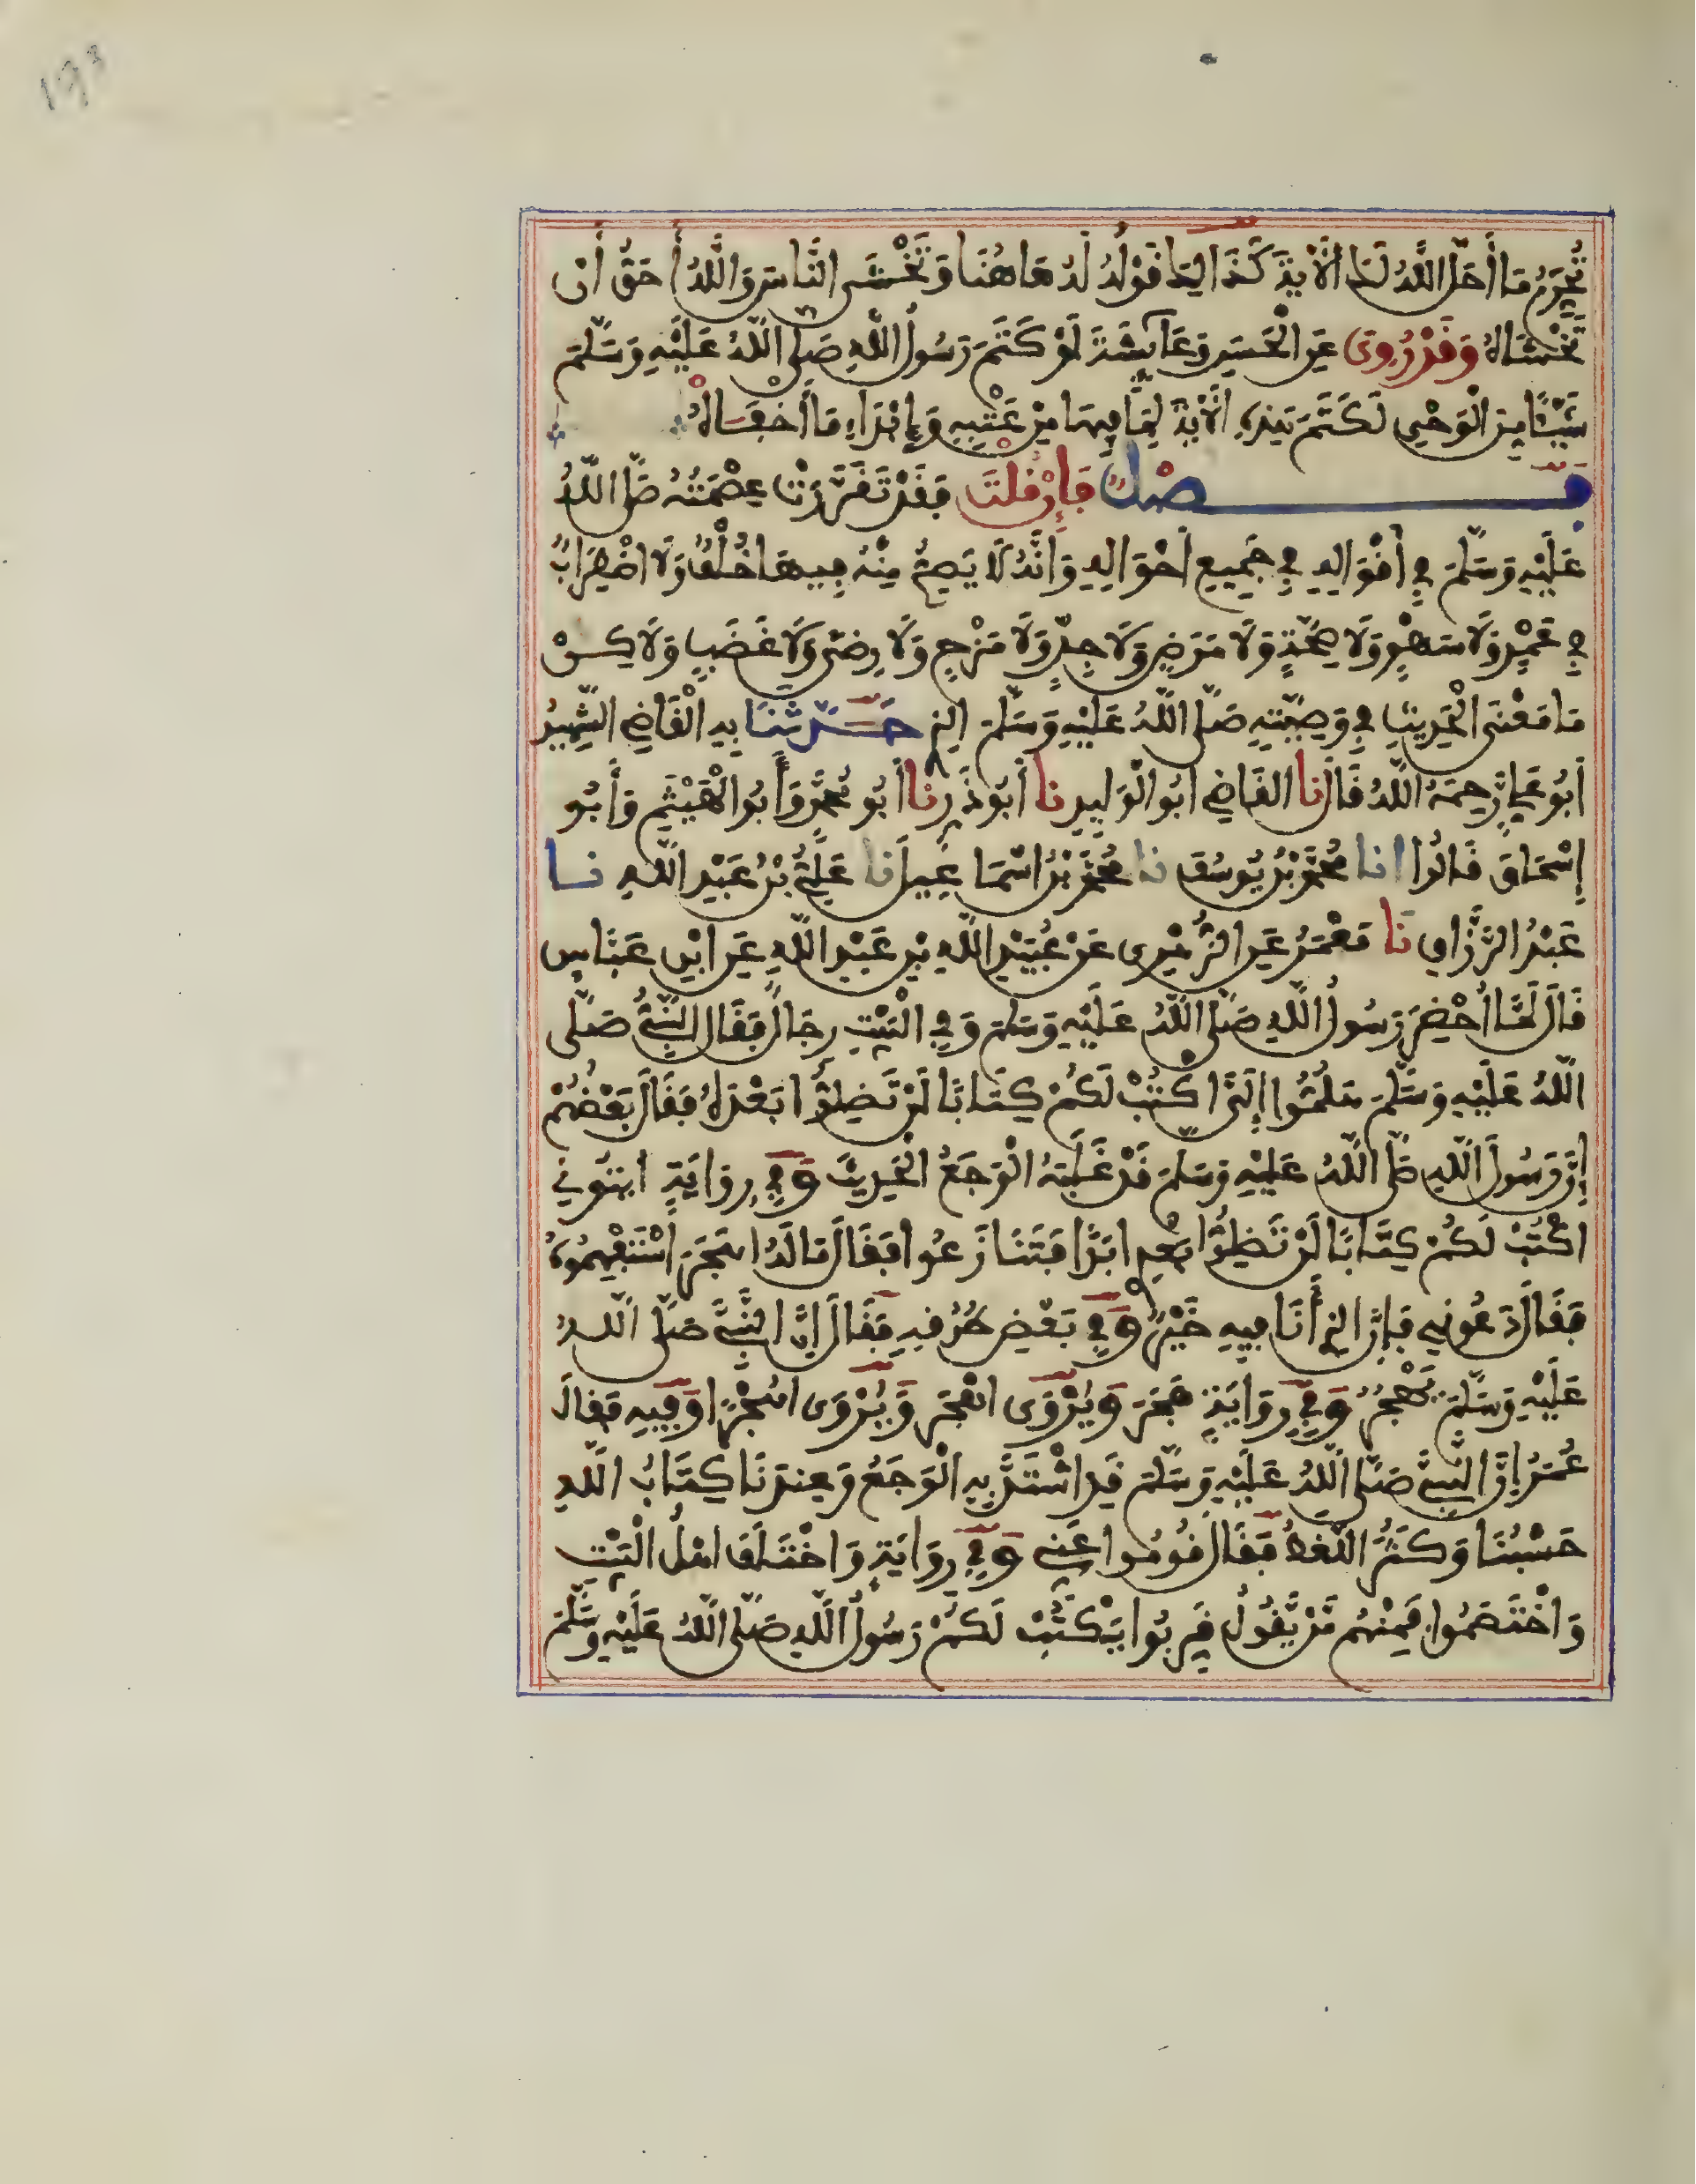 ١٩٣
تُحَرِّمُ مَا أَحَلَّ اللَّهُ لَكَ الْآيَةَ كَذَالِكَ قَوْلُهُ لَهُ هَاهُنَا وَتَخْشَى النَّاسَ وَاللَّهُ أَحَقُّ أَن
تَخْشَاهُ وَقَدْ رُوِيَ عَنِ الْحَسَنِ وَعَائِشَةَ لَوْ كَتَمَ رَسُولُ اللَّهِ صَلَّى اللَّهُ عَلَيْهِ وَسَلَّمَ
شَيْئًا مِنَ الْوَحْيِ لَكَتَمَ هَذِهِ الْآيَةَ لِمَا فِيهَا مِنْ عَتْبِهِ وَإِبْدَاءِ مَا أَخْفَاهُ
فَصْلٌ فَإِنْ قُلْتَ فَقَدْ تَقَرَّرَتْ عِصْمَتُهُ صَلَّى اللَّهُ
عَلَيْهِ وَسَلَّمَ فِي أَقْوَالِهِ فِي جَمِيعِ أَحْوَالِهِ وَأَنَّهُ لَا يَصِحُّ مِنْهُ فِيهَا خُلْفٌ وَلَا اضْطِرَابٌ
فِي عَمْدٍ وَلَا سَهْوٍ وَلَا صِحَّةٍ وَلَا مَرَضٍ وَلَا جِدٍّ وَلَا مَزْحٍ وَلَا رِضًى وَلَا غَضَبٍ وَلَاكِنْ
مَا مَعْنَى الْحَدِيثِ فِي وَصِيَّتِهِ صَلَّى اللَّهُ عَلَيْهِ وَسَلَّمَ الذِي حَدَّثَنَا بِهِ الْقَاضِي الشَّهِيدُ
أَبُو عَلِيٍّ رَحِمَهُ اللَّهُ قَالَ نا الْقَاضِي أَبُو الْوَلِيدِ نا أَبُو ذَرٍّ نا أَبُو مُحَمَّدٍ وَأَبُو الْهَيْثَمِ وَأَبُو
إِسْحَاقَ قَالُوا انا مُحَمَّدُ بْنُ يُوسُفَ نا مُحَمَّدُ بْنُ اسْمَاعِيلَ نا عَلِيُّ بْنُ عَبْدِ اللَّهِ نا
عَبْدُ الرَّزَّاقِ نا مَعْمَرٌ عَنِ الزُّهْرِي عَنْ عُبَيْدِ اللَّهِ بْنِ عَبْدِ اللَّهِ عَنِ ابْنِ عَبَّاسٍ
قَالَ لَمَّا احْتُضِرَ رَسُولُ اللَّهِ صَلَّى اللَّهُ عَلَيْهِ وَسَلَّمَ وَفِي الْبَيْتِ رِجَالٌ فَقَالَ النَّبِيُّ صَلَّى
اللَّهُ عَلَيْهِ وَسَلَّمَ هَلُمُّوا إِلَيَّ اكْتُبْ لَكُمْ كِتَابًا لَنْ تَضِلُّوا بَعْدَهُ فَقَالَ بَعْضُهُمْ
إِنَّ رَسُولَ اللَّهِ صَلَّى اللَّهُ عَلَيْهِ وَسَلَّمَ قَدْ غَلَبَهُ الْوَجَعُ الْحَدِيثَ وَفِي رِوَايَةٍ ايتُونِي
اكْتُبْ لَكُمْ كِتَابًا لَنْ تَضِلُّوا بَعْدِي أَبَدًا فَتَنَازَعُوا فَقَالُوا مَا لَهُ اهَجَرَ اسْتَفْهِمُوهُ
فَقَالَ دَعُونِي فَإِنَّ الذِي أَنَا فِيهِ خَيْرٌ وَفِي بَعْضِ طُرُقِهِ فَقَالَ إِنَّ النَّبِيَّ صَلَّى اللَّهُ
عَلَيْهِ وَسَلَّمَ يَهْجُرُ وَفِي رِوَايَةٍ هَجَرَ وَيُرْوَى اهُجْرٌ وَيُرْوَى اهُجْرًا وَفِيهِ فَقَالَ
عُمَرُ إِنَّ النَّبِيَّ صَلَّى اللَّهُ عَلَيْهِ وَسَلَّمَ قَدِ اشْتَدَّ بِهِ الْوَجَعُ وَعِنْدَنَا كِتَابُ اللَّهِ
حَسْبُنَا وَكَثُرَ اللَّغَطُ فَقَالَ قُومُوا عَنِّي وَفِي رِوَايَةٍ وَاخْتَلَفَ اهْلُ الْبَيْتِ
وَاخْتَصَمُوا فَمِنْهُم مَّنْ يَّقُولُ قَرِّبُوا يَكْتُبْ لَكُمْ رَسُولُ اللَّهِ صَلَّى اللَّهُ عَلَيْهِ وَسَلَّمَ